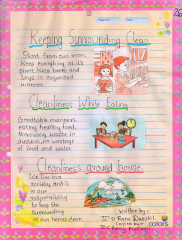 Keeping Surrounding Clean
Start from our room,
Keep everything at its
place. Keep books and
toys in organised
manner.
Cleanliness While Eating
Good table manners,
eating healthy food,
throwing waste in
dustbin, no wastage
of food and water.
Cleanliness around house
We live in a
society and it
is our
responsibility
to keep the
surrounding
of our home clean.
Written by:-
colors